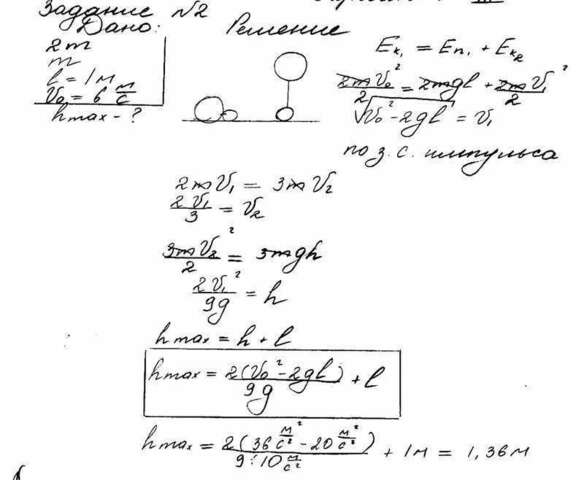 Задание №2
Дано:
2m
m
l = 1м
V₀ = 6 м/с
hmax - ?
Решение
Eк₁ = Eп₁ + Eк₂
2mV₀²/2 = 2mgl + 2mV₁²/2
√(V₀² - 2gl) = V₁
по з. с. импульса
2mV₁ = 3mV₂
2V₁/3 = V₂
3mV₂²/2 = 3mgh
2V₁²/9g = h
hmax = h + l
hmax = 2(V₀² - 2gl)/9g + l
hmax = 2(36 м²/с² - 20 м²/с²)/9·10 м/с² + 1м = 1,36м